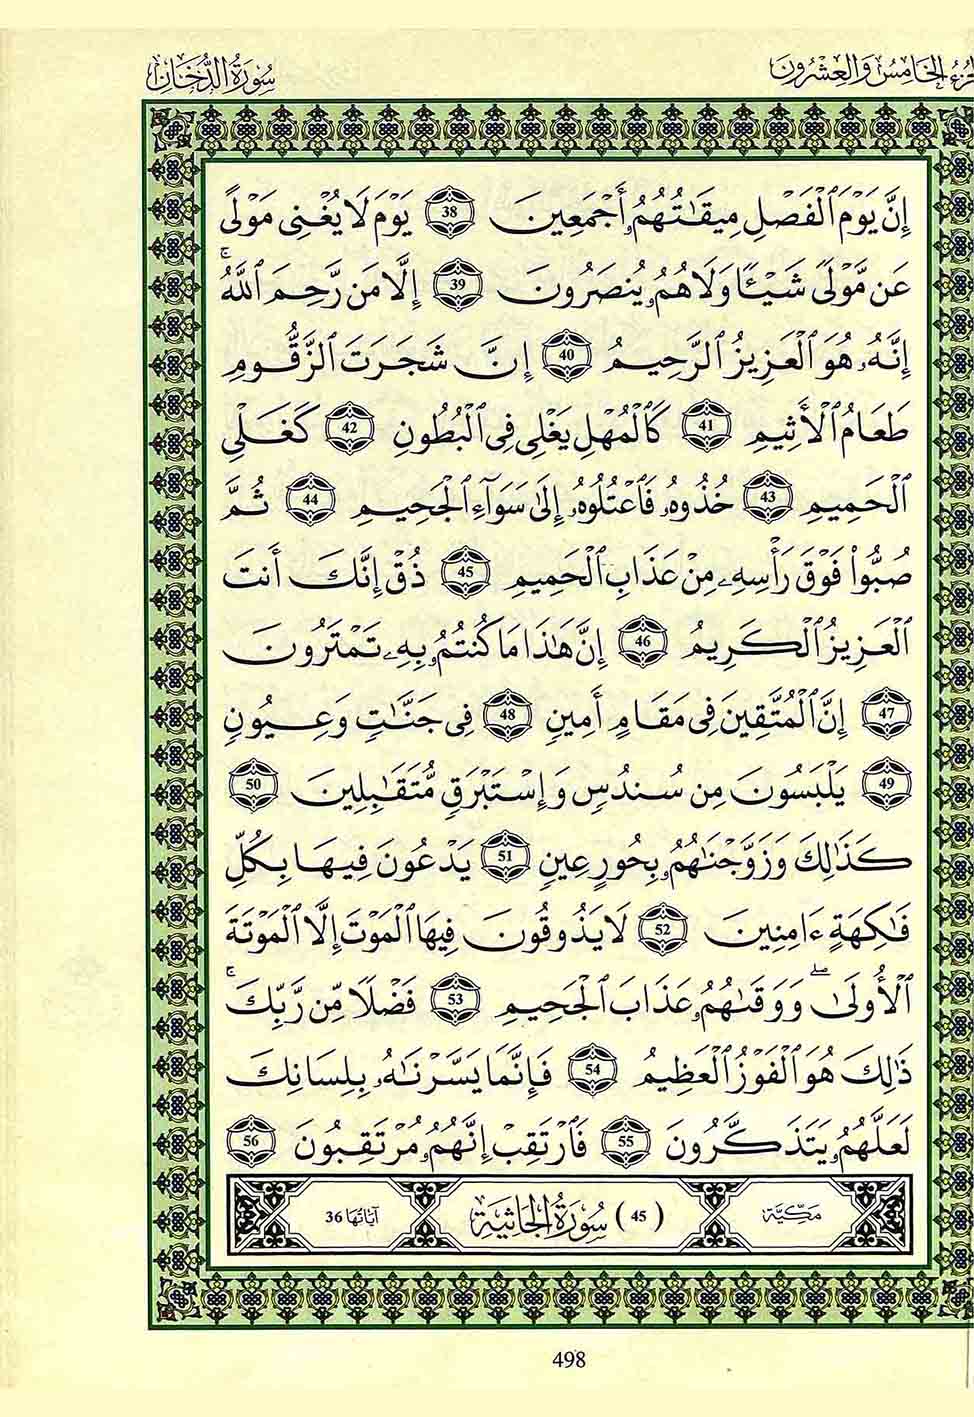 الخَامِسُ وَالعِشْرُونَ سُورَةُ الدُّخَانِ
إِنَّ يَوْمَ اَ۬لْفَصْلِ مِيقَٰتُهُمُۥ أَجْمَعِينَ 38 يَوْمَ لَا يُغْنِي مَوْلًى
عَن مَّوْلٗى شَيْـٔٗا وَلَا هُمُۥ يُنصَرُونَ 39 إِلَّا مَن رَّحِمَ اَ۬للَّهُۚ
إِنَّهُۥ هُوَ اَ۬لْعَزِيزُ اُ۬لرَّحِيمُ 40 إِنَّ شَجَرَتَ اَ۬لزَّقُّومِ
طَعَامُ اُ۬لْأَثِيمِ 41 كَالْمُهْلِ يَغْلِي فِي اِ۬لْبُطُونِ 42 كَغَلْيِ
اِ۬لْحَمِيمِ 43 خُذُوهُۥ فَاعْتُلُوهُۥ إِلَىٰ سَوَآءِ اِ۬لْجَحِيمِ 44 ثُمَّ
صُبُّوا۟ فَوْقَ رَأْسِهِۦ مِنْ عَذَابِ اِ۬لْحَمِيمِ 45 ذُقْ إِنَّكَ أَنتَ
اَ۬لْعَزِيزُ اُ۬لْكَرِيمُ 46 إِنَّ هَٰذَا مَا كُنتُمُۥ بِهِۦ تَمْتَرُونَ
47 إِنَّ اَ۬لْمُتَّقِينَ فِي مَقَامٍ أَمِينٖ 48 فِي جَنَّٰتٖ وَعِيُونٖ
49 يَلْبَسُونَ مِن سُندُسٖ وَإِسْتَبْرَقٖ مُّتَقَٰبِلِينَ 50
كَذَٰلِكَ وَزَوَّجْنَٰهُمُۥ بِحُورٍ عِينٖ 51 يَدْعُونَ فِيهَا بِكُلِّ
فَٰكِهَةٍ ءَامِنِينَ 52 لَا يَذُوقُونَ فِيهَا اَ۬لْمَوْتَ إِلَّا اَ۬لْمَوْتَةَ
اَ۬لْأُولَىٰۖ وَوَقَىٰهُمُۥ عَذَابَ اَ۬لْجَحِيمِ 53 فَضْلٗا مِّن رَّبِّكَۚ
ذَٰلِكَ هُوَ اَ۬لْفَوْزُ اُ۬لْعَظِيمُ 54 فَإِنَّمَا يَسَّرْنَٰهُۥ بِلِسَانِكَ
لَعَلَّهُمُۥ يَتَذَكَّرُونَ 55 فَارْتَقِبْ إِنَّهُمُۥ مُرْتَقِبُونَ 56
مَكِّيَّة (45) سُورَةُ الجَاثِيَةِ آيَاتُهَا 36
498